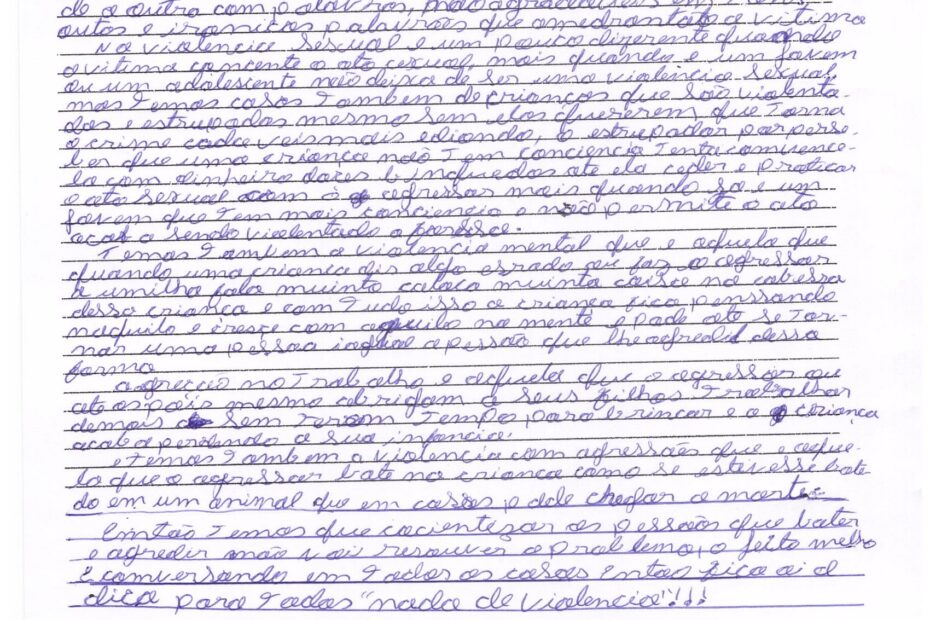 de a outra com palavras, mão agradaveis em
outos e ironicos palavrões que amedrontão a vitima
Na violencia sexual e um pouco diferente quando
a vitima concente o ato cesual, mais quando e um jovem
ou um adolescente não deixa de ser uma violência sexual.
mas temos casos tambem de crianças que são violenta-
das e estrupadas mesmo sem elas quererem que torna
o crime cada veis mais ediondo, o estrupador por perse-
ber que uma criança não tem conciencia tenta comvence-
la com dinheiro doces brinquedos ate ela ceder e praticar
o ato sexual com o agressor mais quando ja e um
jovem que tem mais conciencia e não permite o ato
acaba sendo violentado a forssa.
Temos tambem a violencia mental que e aquela que
quando uma criança dis algo errado ou faz o agressor
umilha fala muinto coloca muinta coisa na cabessa
dessa criança e com tudo isso a criança fica penssando
naquilo e cresce com aquilo na mente e pode ate se tor-
nar uma pessoa igual a pessoa que lhe agredil dessa
forma
agreção no trabalho e aquela que o agressor ou
ate os pais mesmo obrigam a seus filhos trabalhar
demais sem terem tempo para brincar e a criança
acaba perdendo a sua infancia.
e temos tambem a violencia com agressões que e aque-
la que o agressor bate na criança como se estivesse bate
do em um animal que em casos pode chegar a morte
Emtão temos que cocientezar as pessoas que bater
e agredir mão vai resouver o problemo, o jeito melho
é comversando em todos os casos entao fica ai a
dica para todos "nada de violencia"!!!